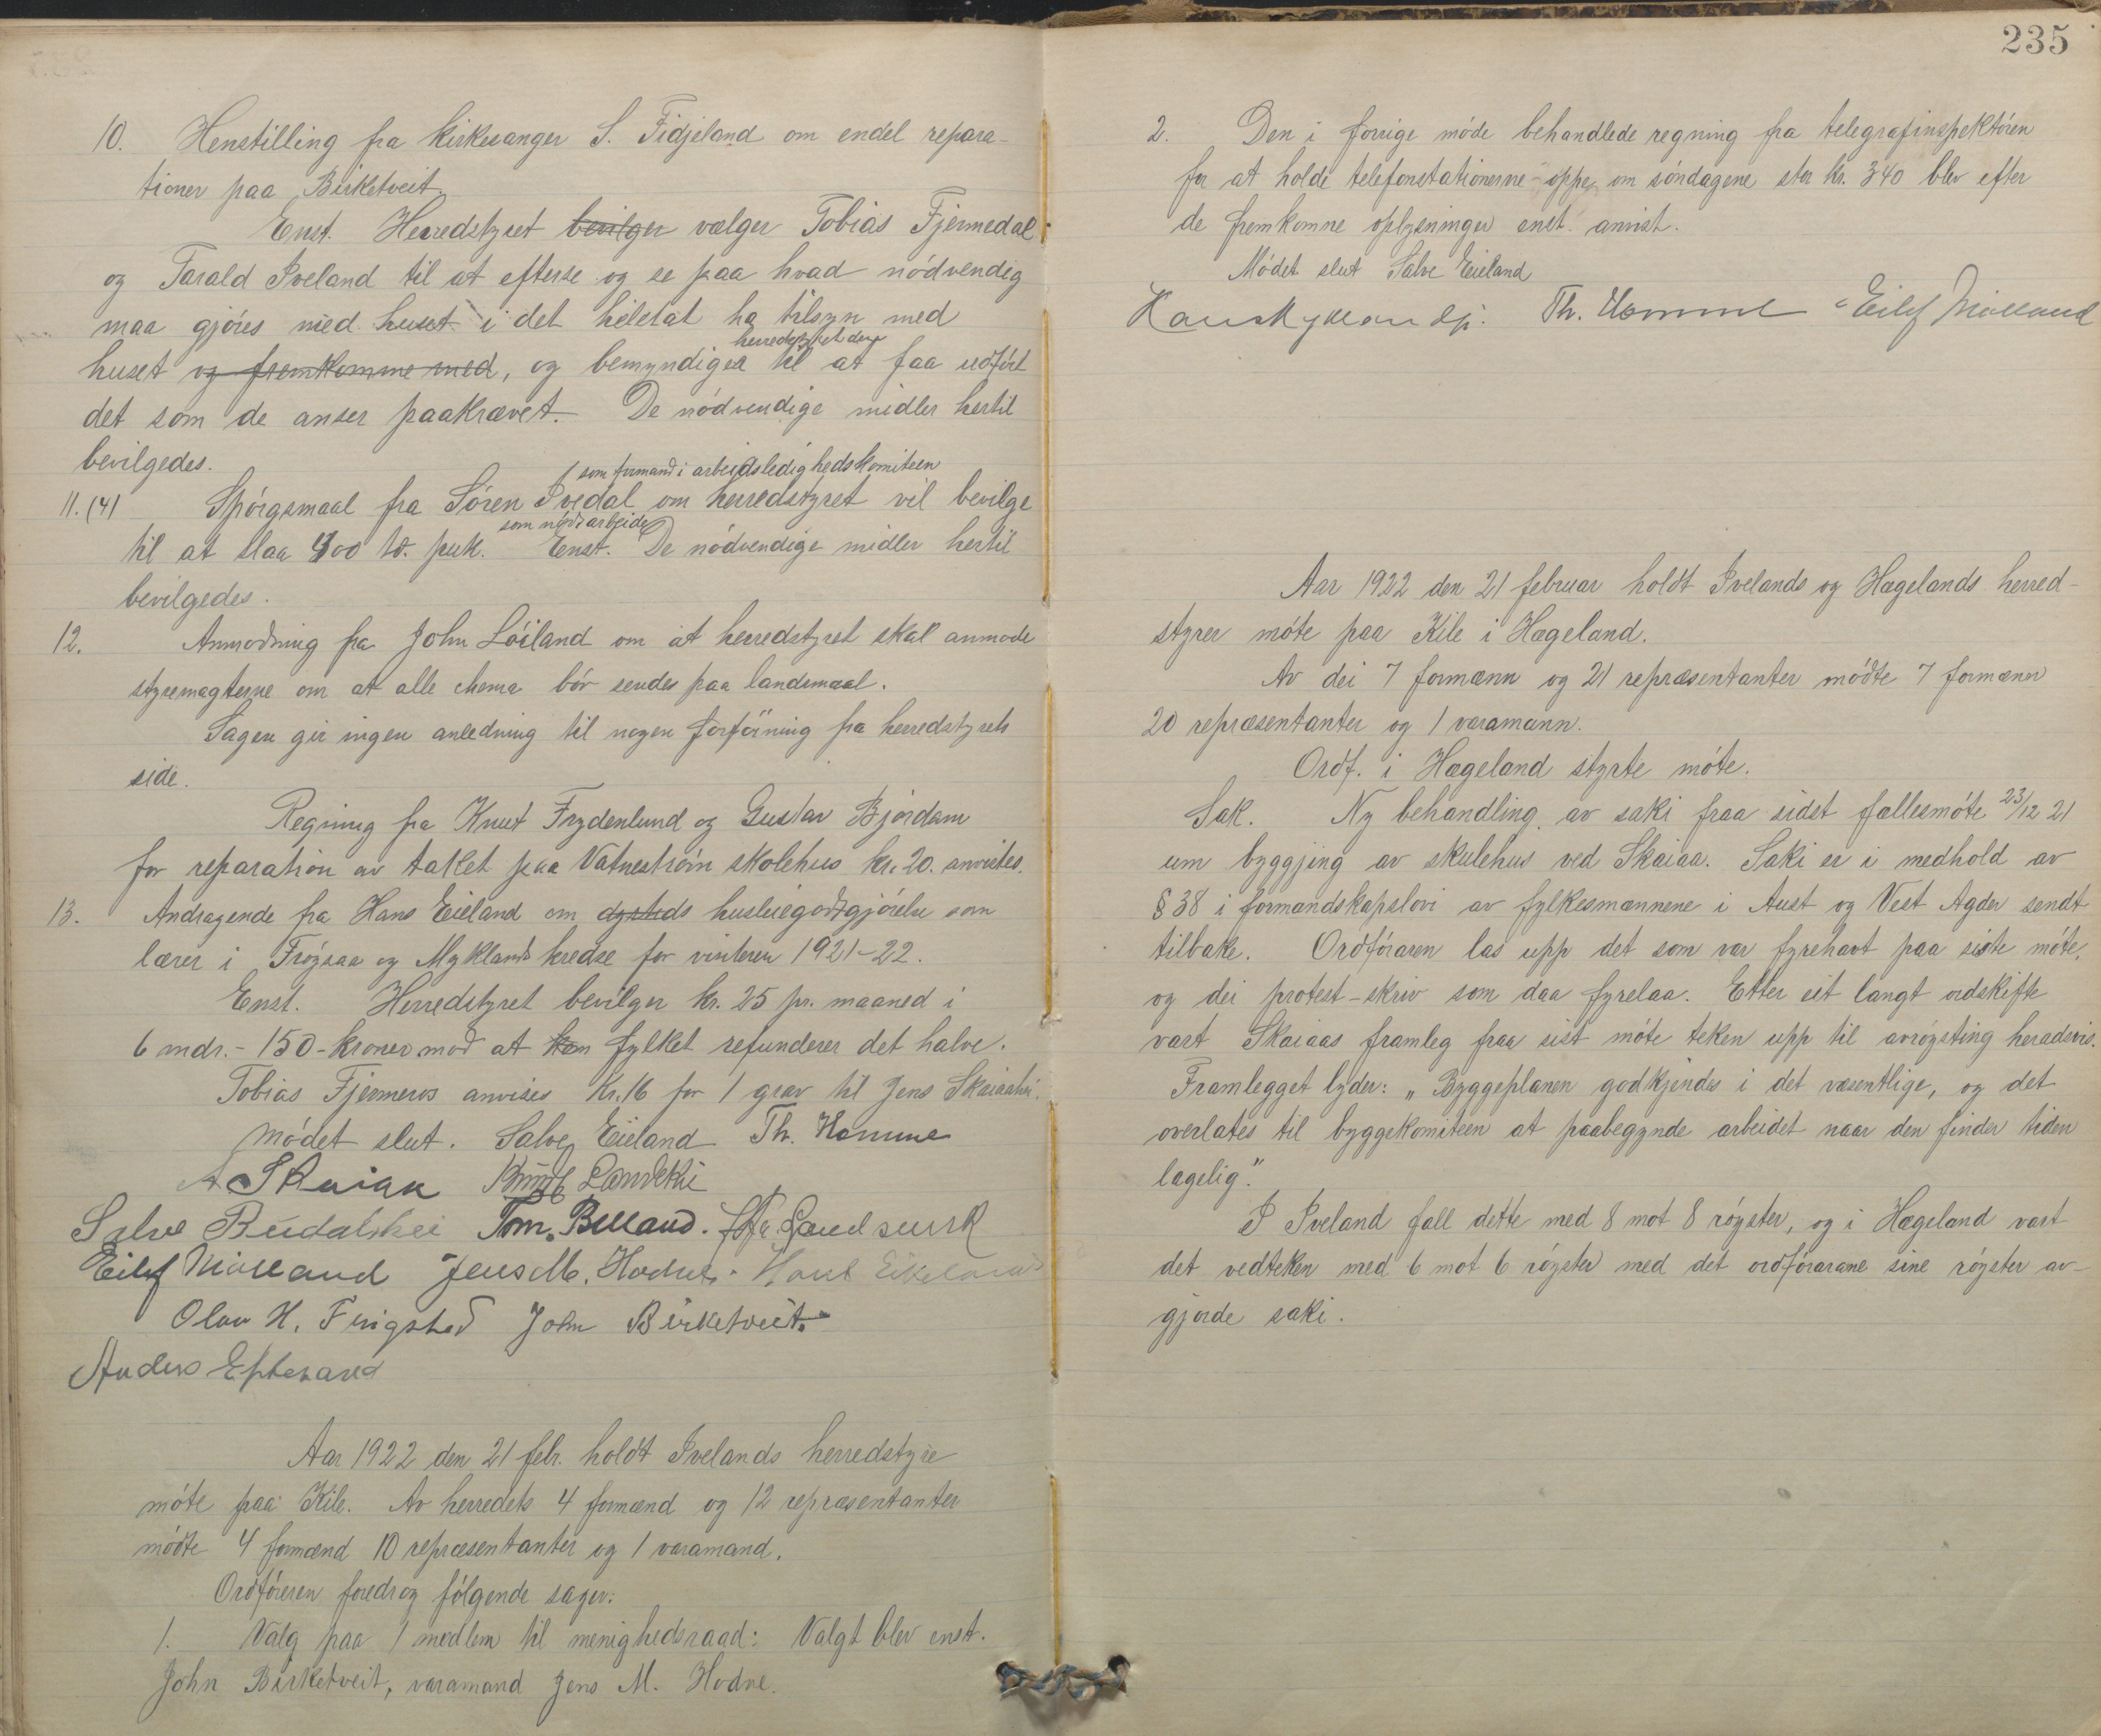 10. Henstilling fra kirkesanger S. Fidjeland om endel repara-
tioner paa Birketveit.
Enst. Herredstyret bevilger vælger Tobias Fjermedal
og Tarald Iveland til at efterse og se paa hvad nödvendig
maa gjöres med huset i det heletat ha tilsyn med
herredstyret dem
huset og fremkomme med, og bemyndiger til at faa udfört
det som de anser paakrævet. De nödvendige midler hertil
bevilgedes.
som formand i arbeidsledighedskomiteen
11. (4) Spörgsmaal fra Sören Ivedal om herredstyret vil bevilge
som nödsarbeide
til at slaa 400 td. puk. Enst. De nödvendige midler hertil
bevilgedes.
12. Anmodning fra John Löiland om at herredstyret skal anmode
styremagterne om at alle skema bör sendes paa landsmaal.
Sagen gir ingen anledning til nogen forföining fra herredstyrets
side.
Regning fra Knut Frydenlund og Gustav Bjordam
for reparation av taket paa Vatneström skolehus kr. 20. anvistes.
13. Andragende fra Hans Eieland om husleiegodtgjörelse som
lærer i Fröysaa og Myklands kredse for vinteren 1921-22.
Enst. Herredstyret bevilger kr. 25 pr. maaned i
6 mdr. - 150 - kroner mod at fylket refunderer det halve.
Tobias Fjermeros anvises Kr. 16 for 1 grav til Jens Skaiaahei.
Mödet slut. Salve Eieland Th. Homme
A Skaiaa Knut Landekhi
Salve Budalshei Tom. Birkeland.
Eilef Mölland Jens M. Hodne. Hans Eikeland
Olav H. Frigstad John Birketveit.
Anders Epteland
Aar 1922 den 21 febr. holdt Ivelands herredstyre
möte paa Kile. Av herredets 4 formænd og 12 repræsentanter
mödte 4 formænd 10 repræsentanter og 1 varamand.
Ordföreren foredrog fölgende sager:
1. Valg paa 1 medlem til menighedsraad: Valgt blev enst.
John Birketveit, varamand Jens M. Hodne.
235
2. Den i forrige möde behandlede regning fra telegrafinspektören
for at holde telefonstationerne oppe om söndagene stor kr. 340 blev efter
de fremkomne oplysninger enst. anvist.
Mödet slut Salve Eieland
Th. Homme Eilef Mölland
Aar 1922 den 21 februar holdt Ivelands og Hægelands herred-
styrer möte paa Kile i Hægeland.
Av dei 7 formænn og 21 repræsentanter mödte 7 formænn
20 repræsentanter og 1 varamann.
Ordf. i Hægeland styrte möte.
Sak. Ny behandling av saki fraa sidst fællesmöte 23/12 21
um byggjing av skulehus ved Skaiaa. Saki er i medhold av
§ 38 i formandskapslovi av fylkesmænnene i Aust og Vest Agder sendt
tilbake. Ordföraren las upp det som var fyrehavt paa siste möte,
og dei protest-skriv som daa fyrelaa. Etter eit langt ordskifte
vart Skaiaas framleg fraa sist möte teken upp til avröysting heradsvis.
Framlegget lyder: „Byggeplanen godkjendes i det væsentlige, og det
overlates til byggekomiteen at paabegynde arbeidet naar den finder tiden
lagelig".
I Iveland fall dette med 8 mot 8 röyster, og i Hægeland vart
det vedteken med 6 mot 6 röyster med det ordförarane sine röyster av-
gjorde saki.